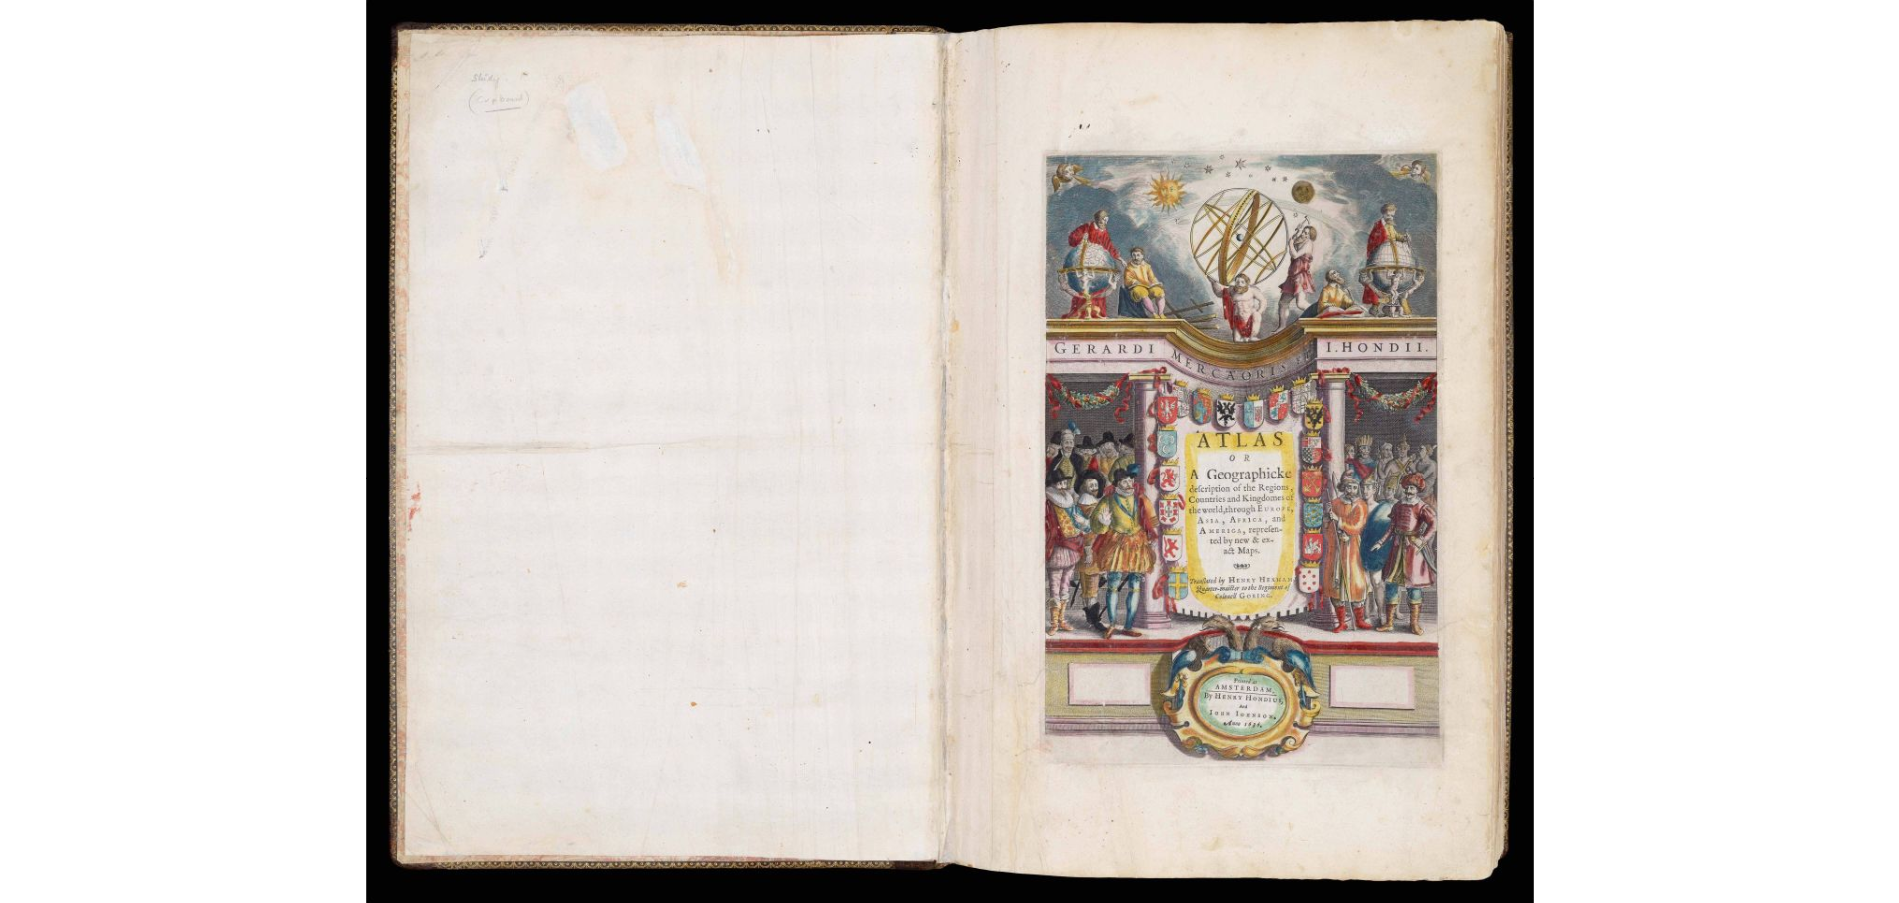 GERARDI MERCAORIS ET I. HONDII.
ATLAS
OR
A Geographicke
deſcription of the Regions,
Countries and Kingdomes of
the world, through EUROPE,
ASIA, AFRICA, and
AMERICA, repreſen-
ted by new & ex-
act Maps.
Tranſlated by HENRY HEXHAM,
Quarter-maiſter to the Regiment of
Colonell GORING.
Printed at
AMSTERDAM,
By HENRY HONDIUS,
And
IOHN IOHNSON,
Anno 1636.